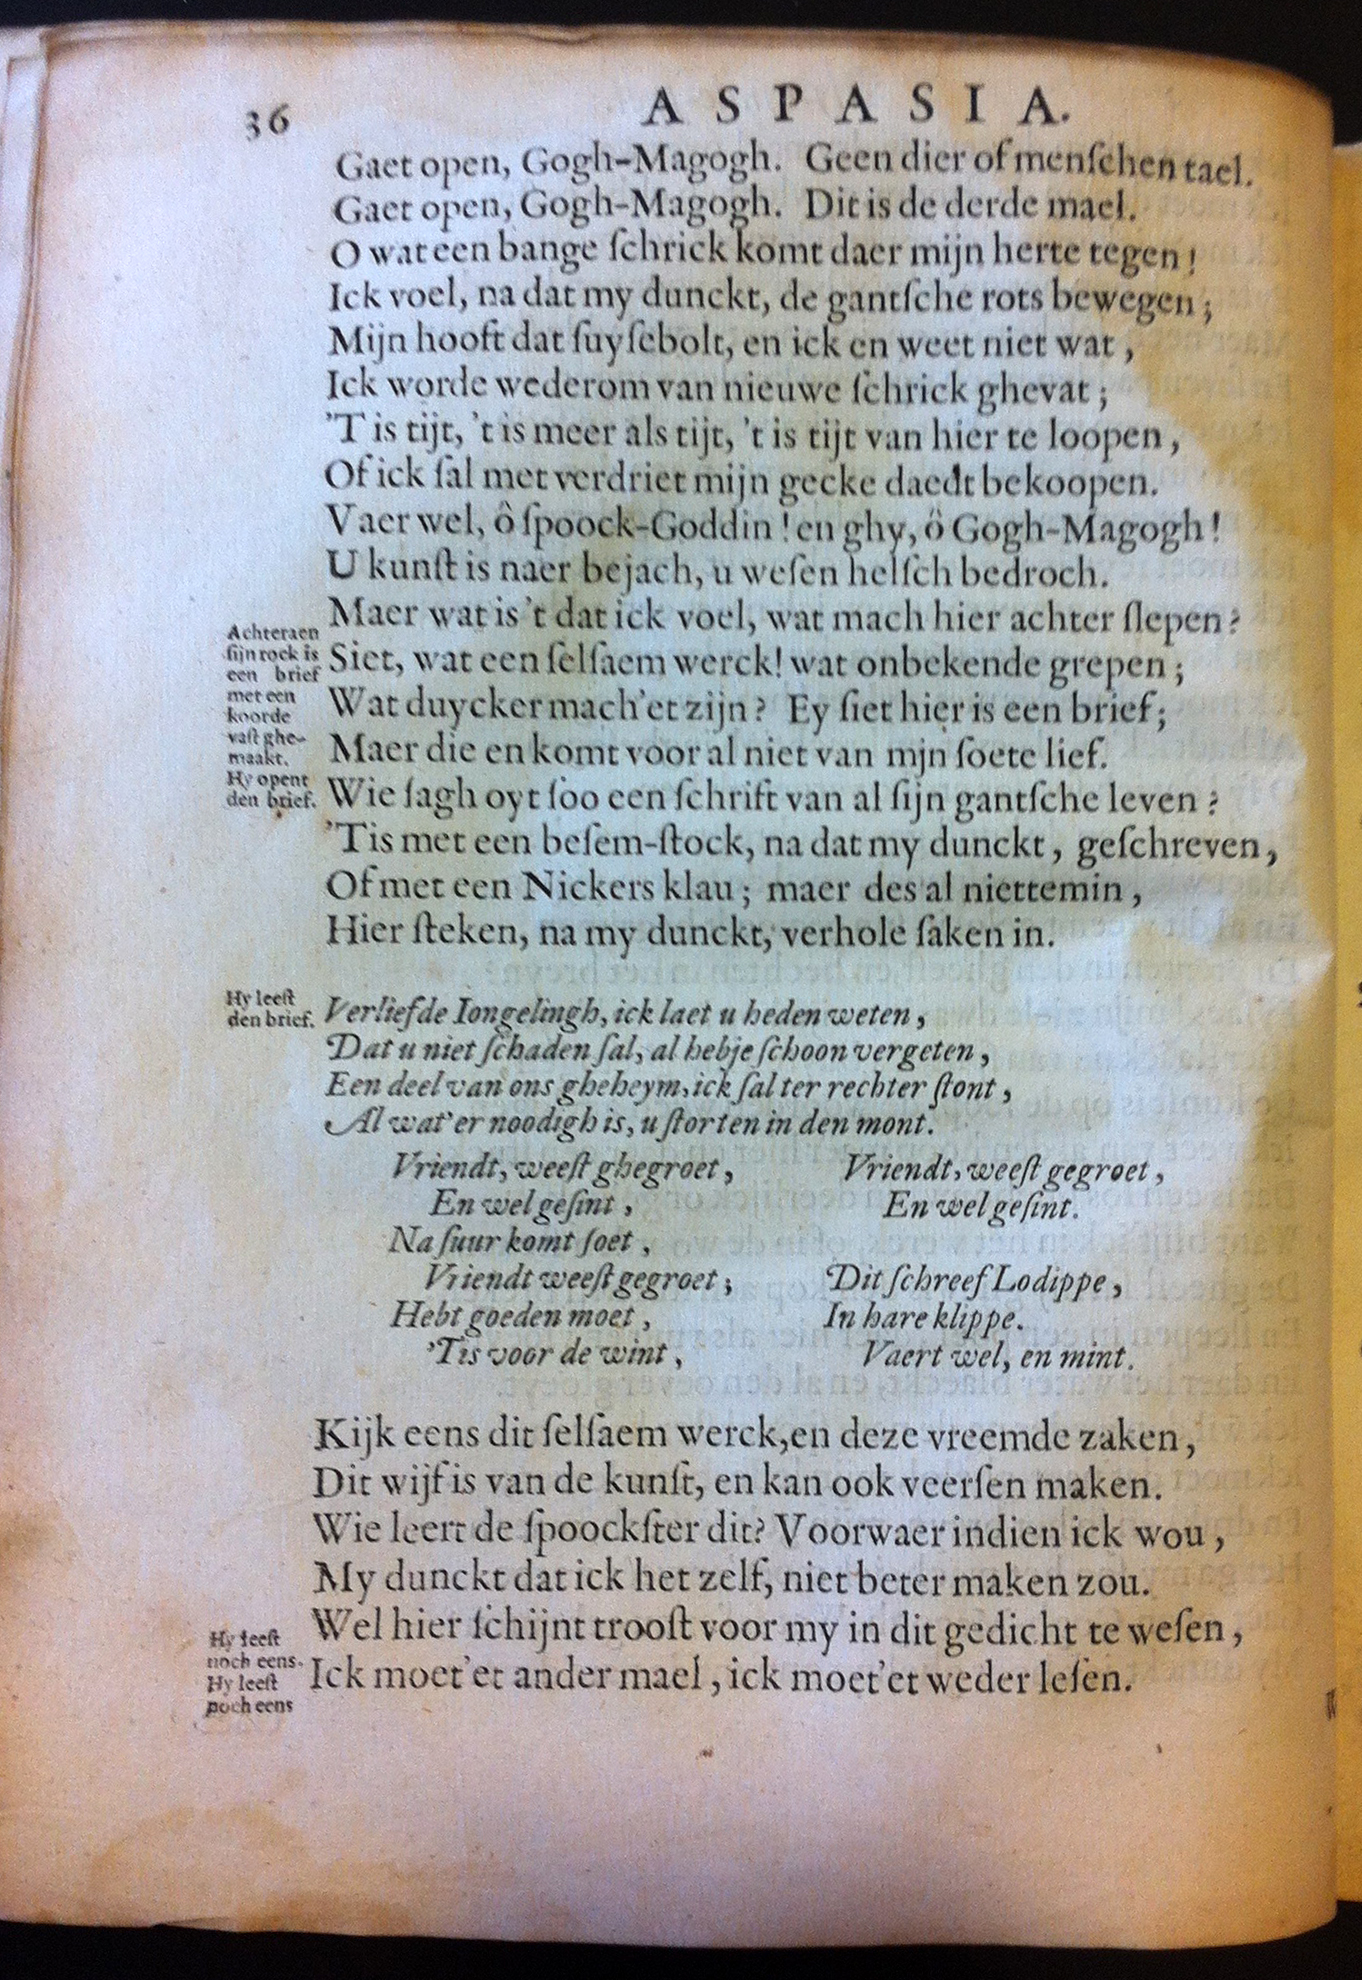 36
ASPASIA.
Gaet open, Gogh-Magogh. Geen dier of menſchen tael.
Gaet open, Gogh-Magogh. Dit is de derde mael.
O wat een bange ſchrick komt daer mijn herte tegen!
Ick voel, na dat my dunckt, de gantſche rots bewegen;
Mijn hooft dat ſuyſebolt, en ick en weet niet wat,
Ick worde wederom van nieuwe ſchrick ghevat;
'T is tijt, 't is meer als tijt, 't is tijt van hier te loopen,
Of ick ſal met verdriet mijn gecke daedt bekoopen.
Vaer wel, ô ſpoock-Goddin! en ghy, ô Gogh-Magogh!
U kunſt is naer bejach, u weſen helſch bedroch.
Maer wat is 't dat ick voel, wat mach hier achter ſlepen?
Achteraen
ſijn rock is
een brief
met een
koorde
vaſt ghe-
maakt.
Siet, wat een ſelſaem werck! wat onbekende grepen;
Wat duycker mach'et zijn? Ey ſiet hier is een brief;
Maer die en komt voor al niet van mjn ſoete lief.
Hy opent
den brief.
Wie ſagh oyt ſoo een ſchrift van al ſijn gantſche leven?
'Tis met een beſem-ſtock, na dat my dunckt, geſchreven,
Of met een Nickers klau; maer des al niettemin,
Hier ſteken, na my dunckt, verhole ſaken in.
Hy leeſt
den brief.
Verliefde Iongelingh, ick laet u heden weten,
Dat u niet ſchaden ſal, al hebje ſchoon vergeten,
Een deel van ons gheheym, ick ſal ter rechter ſtont,
Al wat'er noodigh is, u ſtorten in den mont.
Vriendt, weeſt ghegroet,
En wel geſint,
Na ſuur komt ſoet,
Vriendt weeſt gegroet;
Hebt goeden moet,
'Tis voor de wint,
Vriendt, weeſt gegroet,
En wel geſint.
Dit ſchreef Lodippe,
In hare klippe.
Vaert wel, en mint.
Kijk eens dit ſelſaem werck, en deze vreemde zaken,
Dit wijf is van de kunſt, en kan ook veerſen maken.
Wie leert de ſpoockſter dit? Voorwaer indien ick wou,
My dunckt dat ick het zelf, niet beter maken zou.
Wel hier ſchijnt trooſt voor my in dit gedicht te weſen,
Hy leeſt
noch eens.
Hy leeſt
noch eens
Ick moet'et ander mael, ick moet'et weder leſen.